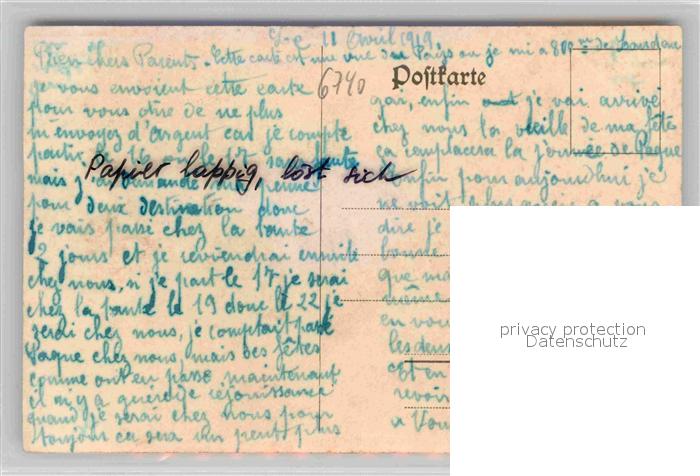 Le 11 Avril 1919
Bien chers Parents. Cette carte est une vue du Pays ou je mi a 800 m de
6740
Postkarte
je vous envoient cette carte
pour vous dire de ne plus
m'envoyez d'argent car je compte
partir le 16 ou le 17
mais j'ai demandé
pour deux destination donc
je vais passé chez la tante
2 jours et je reviendrai ensuite
chez nous, si je part le 17 je serai
chez la tante le 19 donc le 22 je
serai chez nous, je comptait passé
Paque chez nous, mais des fêtes
comme ont en passe maintenant
il n'y a guère de rejouissance
quand je serai chez nous pour
toujour ca sera un peut plus
gai, enfin je vai arrivé
chez nous la veille de ma fête
ca remplacera la journée de Paque
Enfin pour aujourd'hui je
ne voit plus
dire je
bonne
que ma
même
en vous
les deux
Et en
revoir
a Vous
Papier lappig, löst sich
privacy protection
Datenschutz